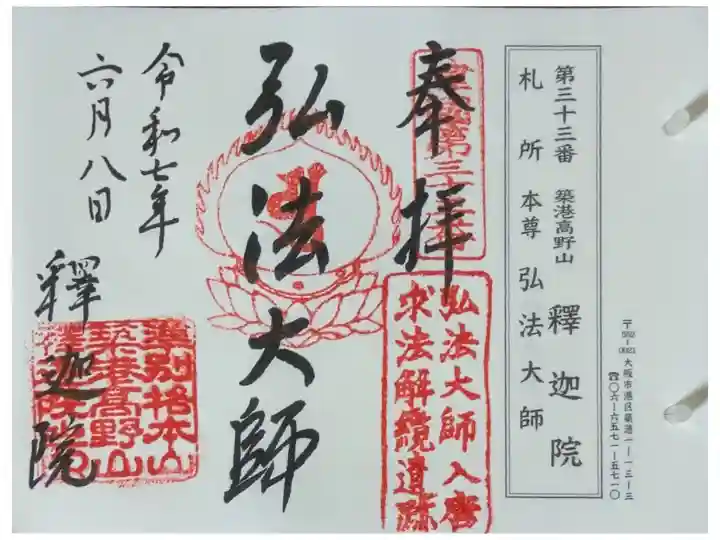 第三十三番 築港高野山 釋迦院
札所本尊 弘法大師
〒552-0021 大阪市港区築港一-一三-三
☎〇六-六五七一-五七一〇
奉拝
弘法大師入唐
求法解纜遺跡
弘法大師
令和七年
六月八日
釋迦院
準別格本山
築港高野山